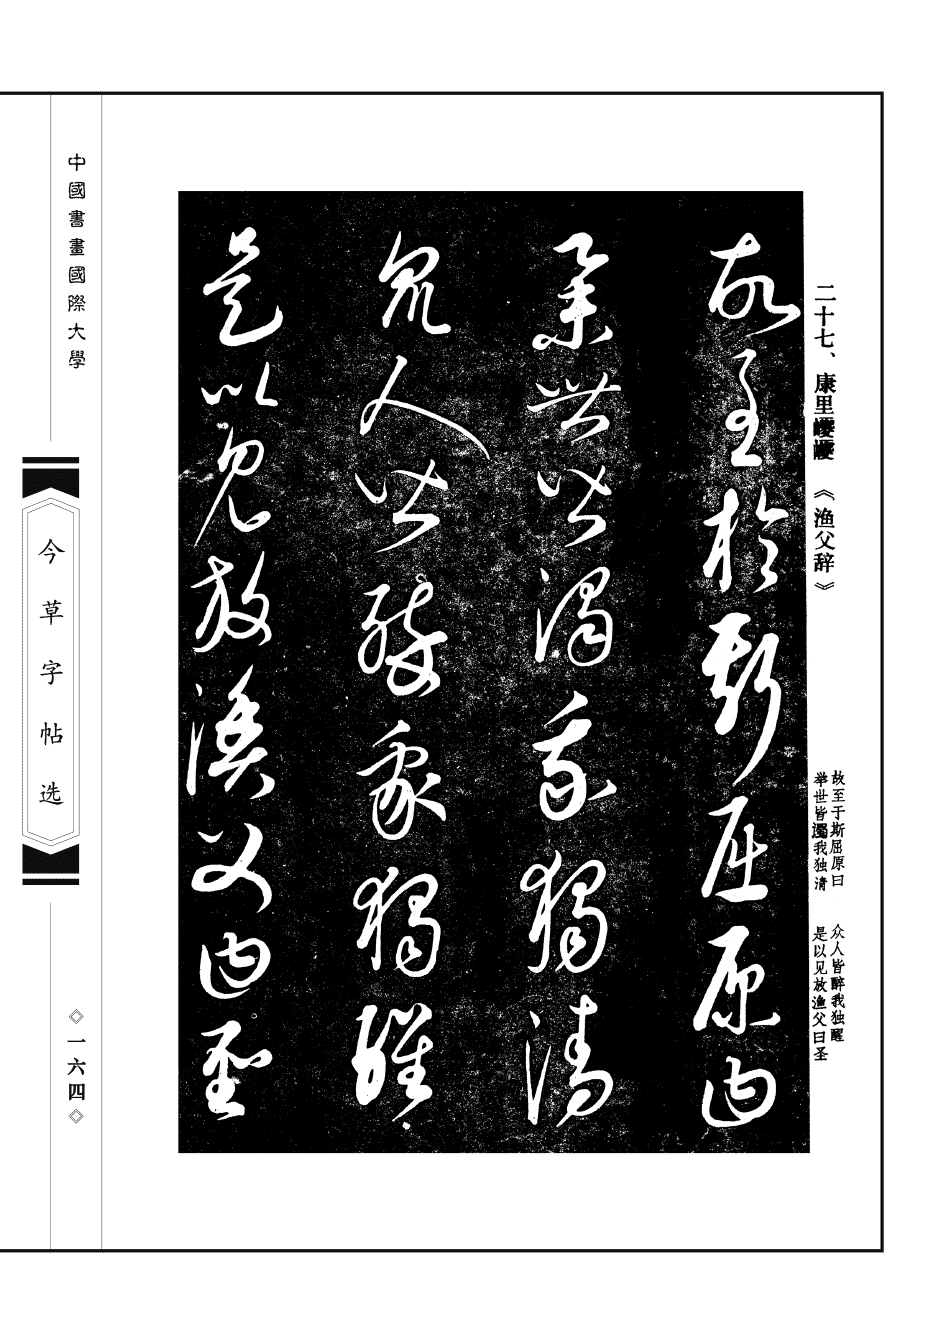 二十七、康里巎巎 《渔父辞》
故至于斯屈原曰
举世皆濁我独清
众人皆醉我独醒
是以见放渔父曰圣
故至於斯屈原曰
舉世皆濁我獨清
眾人皆醉我獨醒
是以見放漁父曰聖
中國書畫國際大學
今草字帖选
◇一六四◇